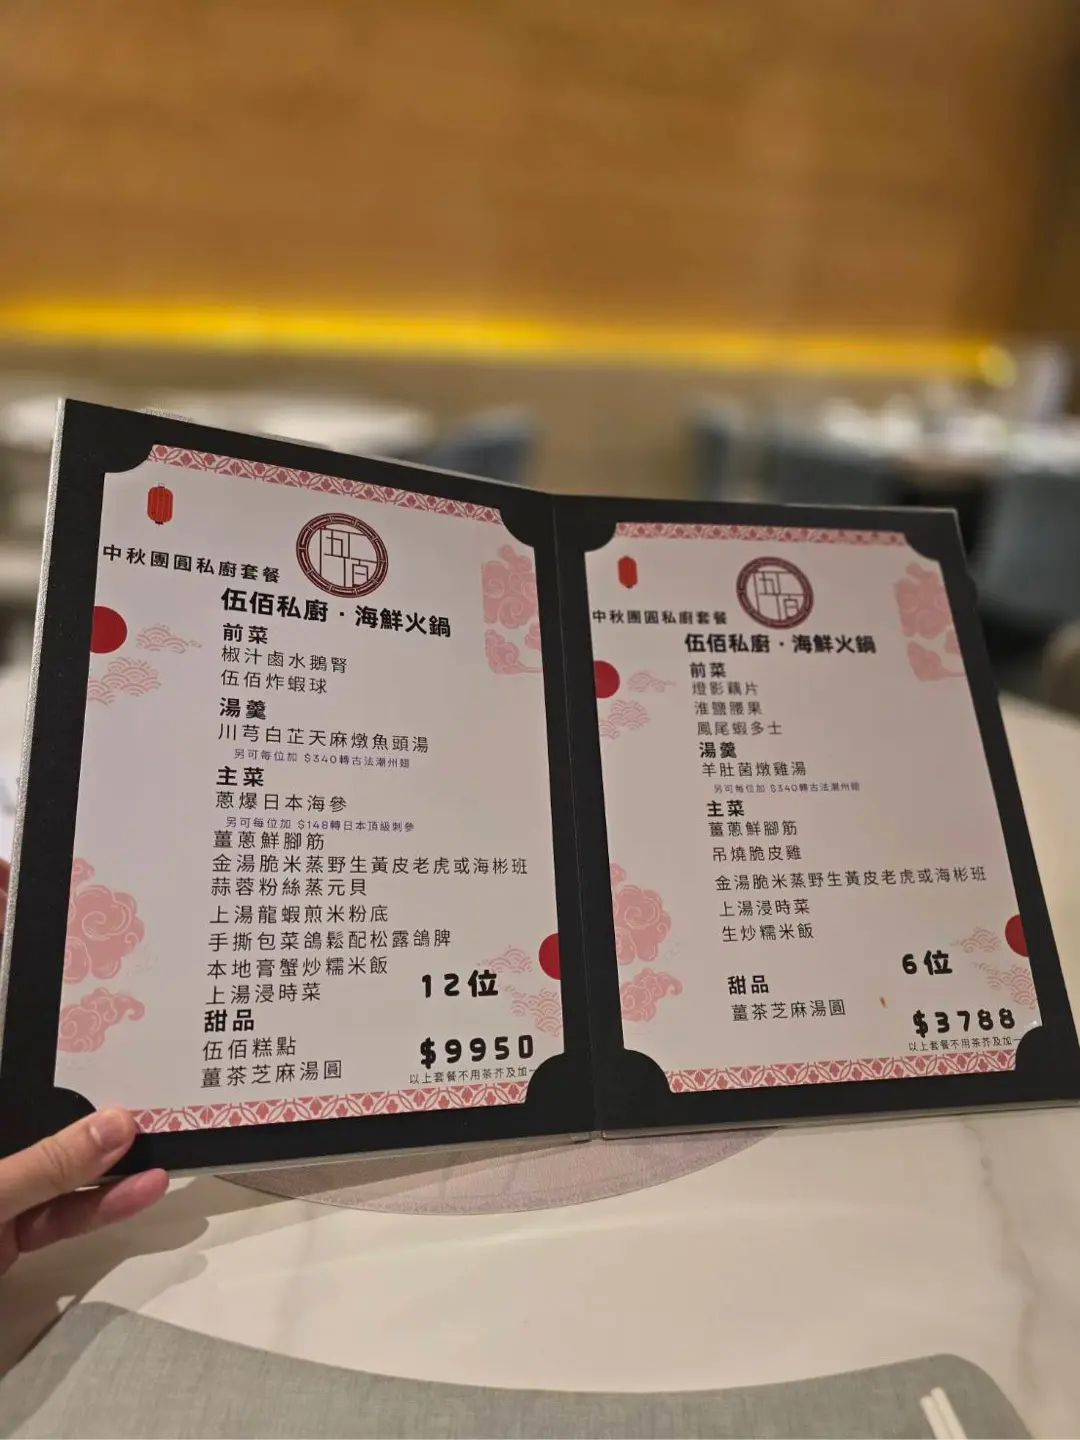 中秋團圓私廚套餐
伍佰
伍佰私廚·海鮮火鍋
前菜
椒汁鹵水鵝腎
伍佰炸蝦球
湯羹
川芎白芷天麻燉魚頭湯
另可每位加 $340轉古法潮州翅
主菜
蔥爆日本海參
另可每位加 $148轉日本頂級刺參
薑蔥鮮腳筋
金湯脆米蒸野生黃皮老虎或海彬班
蒜蓉粉絲蒸元貝
上湯龍蝦煎米粉底
手撕包菜鴿鬆配松露鴿脾
本地膏蟹炒糯米飯
上湯浸時菜
12位
甜品
伍佰糕點
薑茶芝麻湯圓
$9950
以上套餐不用茶芥及加一
中秋團圓私廚套餐
伍佰
伍佰私廚·海鮮火鍋
前菜
燈影藕片
淮鹽腰果
鳳尾蝦多士
湯羹
羊肚菌燉雞湯
另可每位加 $340轉古法潮州翅
主菜
薑蔥鮮腳筋
吊燒脆皮雞
金湯脆米蒸野生黃皮老虎或海彬班
上湯浸時菜
生炒糯米飯
6位
甜品
薑茶芝麻湯圓
$3788
以上套餐不用茶芥及加一